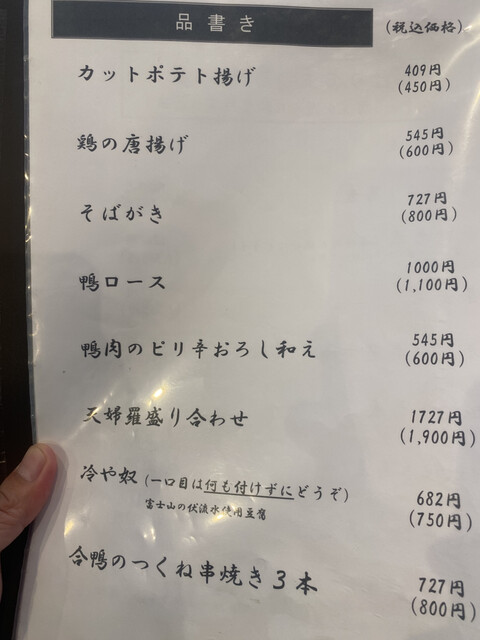 品書き (税込価格)
カットポテト揚げ 409円
(450円)
鶏の唐揚げ 545円
(600円)
そばがき 727円
(800円)
鴨ロース 1000円
(1,100円)
鴨肉のピリ辛おろし和え 545円
(600円)
天婦羅盛り合わせ 1727円
(1,900円)
冷や奴 (一口目は何も付けずにどうぞ) 682円
富士山の伏流水使用豆腐 (750円)
合鴨のつくね串焼き3本 727円
(800円)